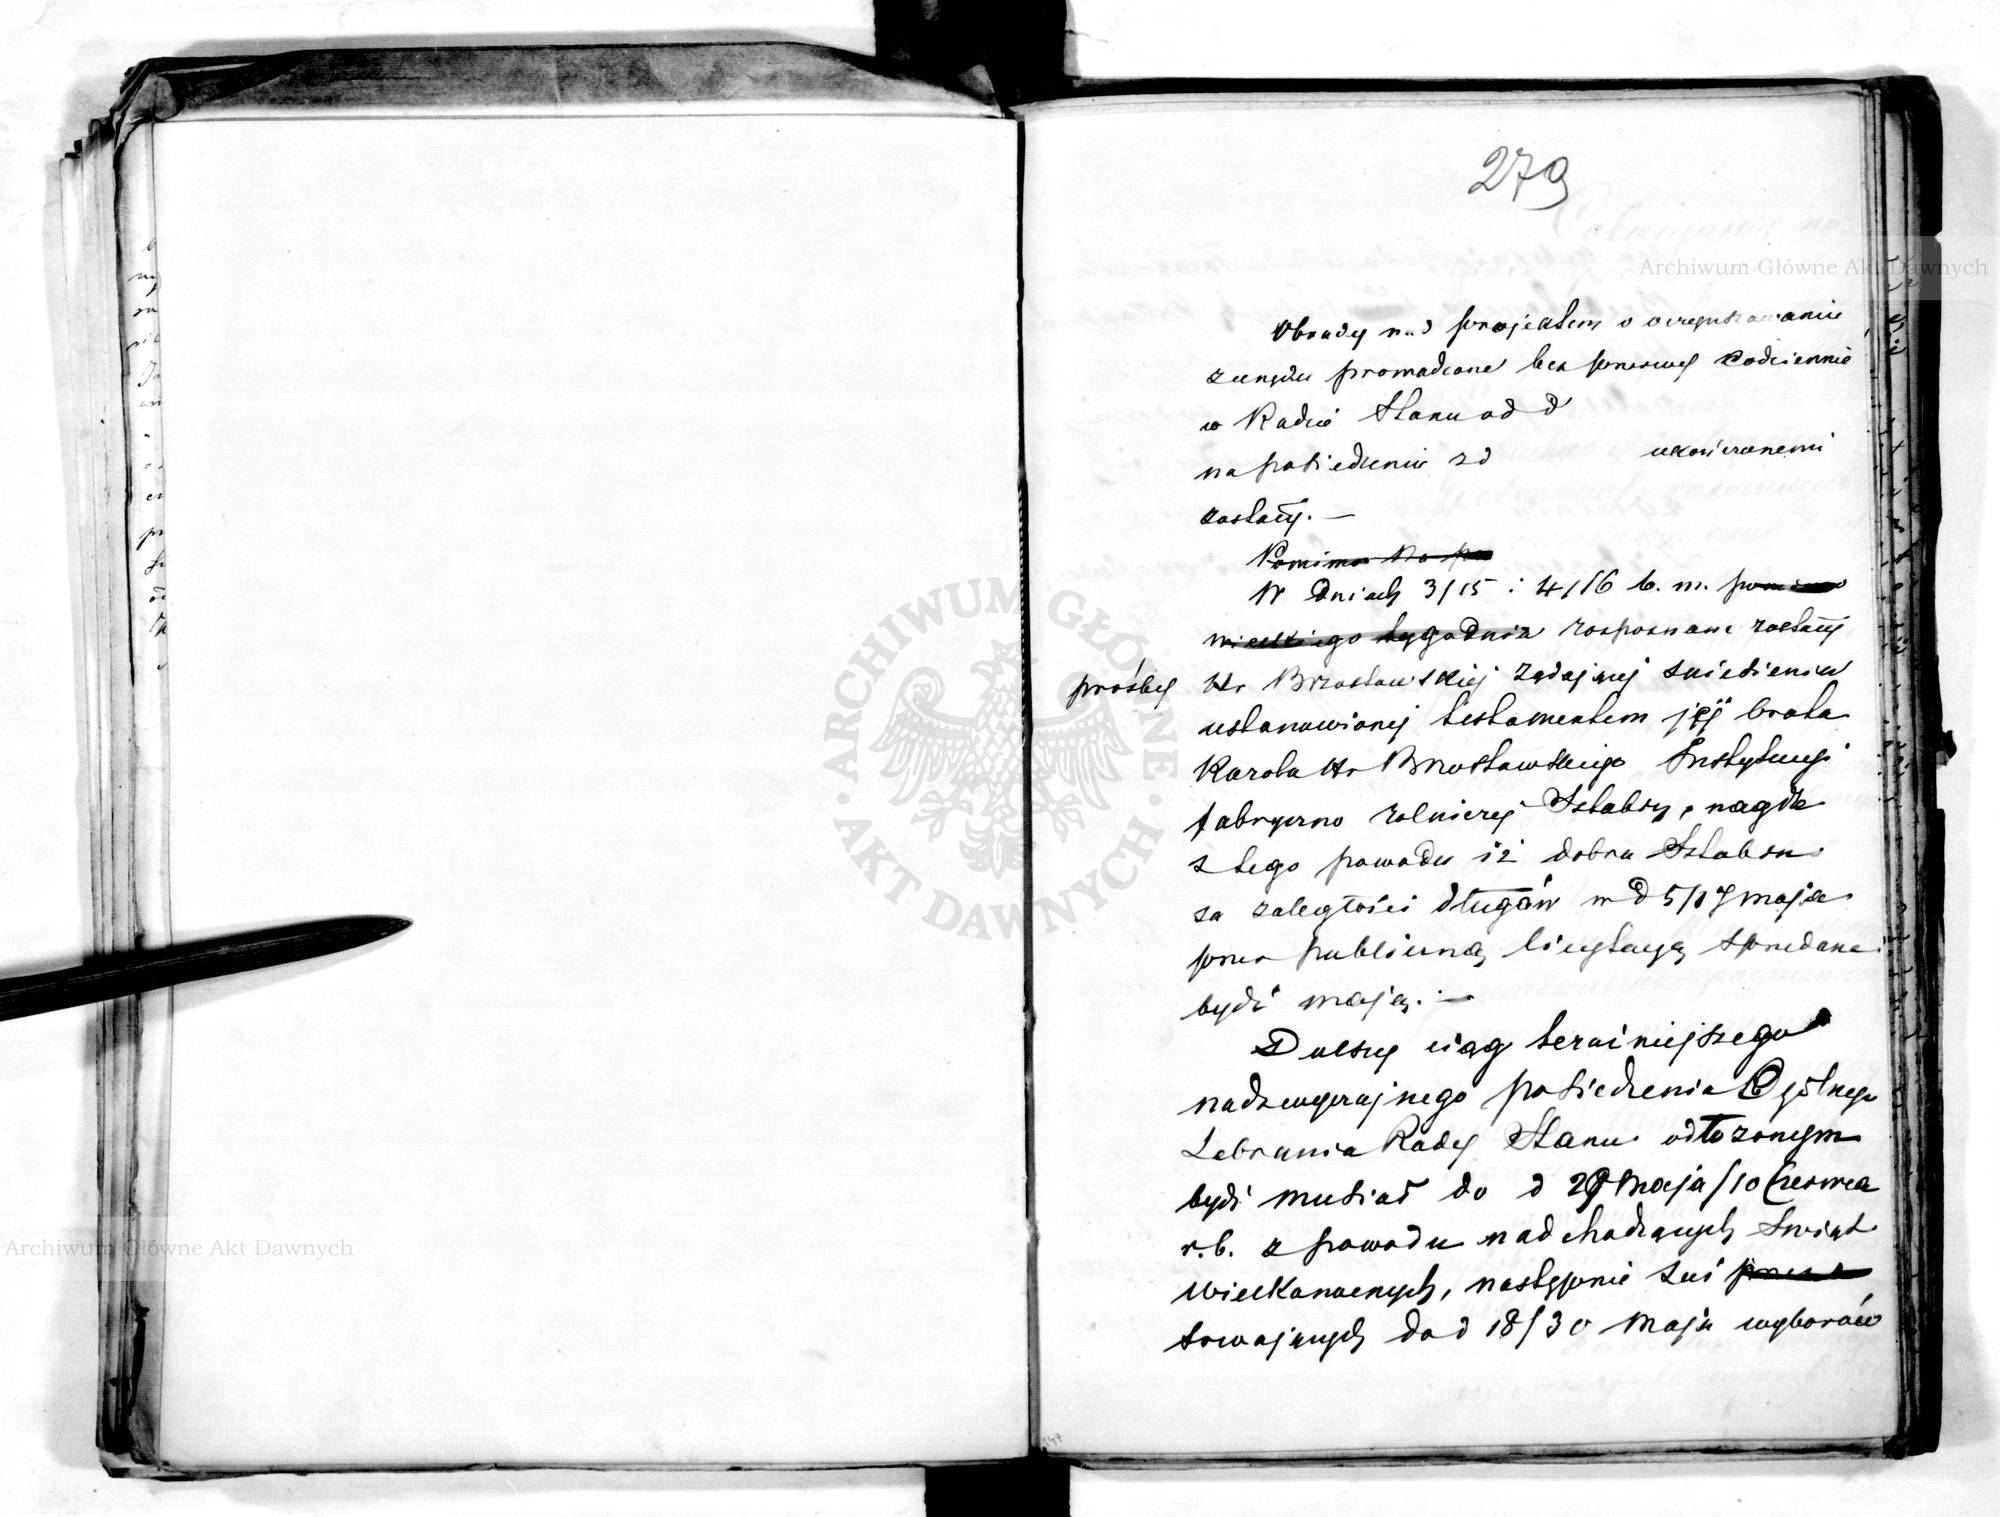 279
Obrady nad projektem o oczynszowaniu
prowadzone bez przerwy codziennie
w Radzie Stanu od d
na posiedzeniu zd ukończonemi
zostały. —
Pomimo
W Dniach 3/15 i 4/16 b. m. pomimo
wielkiego tygodnia rozpoznane zostały
prośby Hr Brzostowskiej żądającej zniesienia
ustanowionej testamentem jej brata
Karola Hr Brzostowskiego Instytucyi
fabryczno rolniczej Sztabin, nagle
z tego powodu iż dobra Sztabin
za zaległości długów w d 5/17 maja
przez publiczną licytacyą sprzedane
bydź mają. —
Dalszy ciąg teraźniejszego
nadzwyczajnego posiedzenia Ogólnego
Zebrania Rady Stanu odłożonym
bydź musiał do d 29 Maja/10 Czerwca
r. b. z powodu nadchodzących Świąt
Wielkanocnych, następnie zaś
trwających do d 18/30 Maja wyborów
Archiwum Główne Akt Dawnych
Archiwum Główne Akt Dawnych
· ARCHIWUM GŁÓWNE · AKT DAWNYCH ·